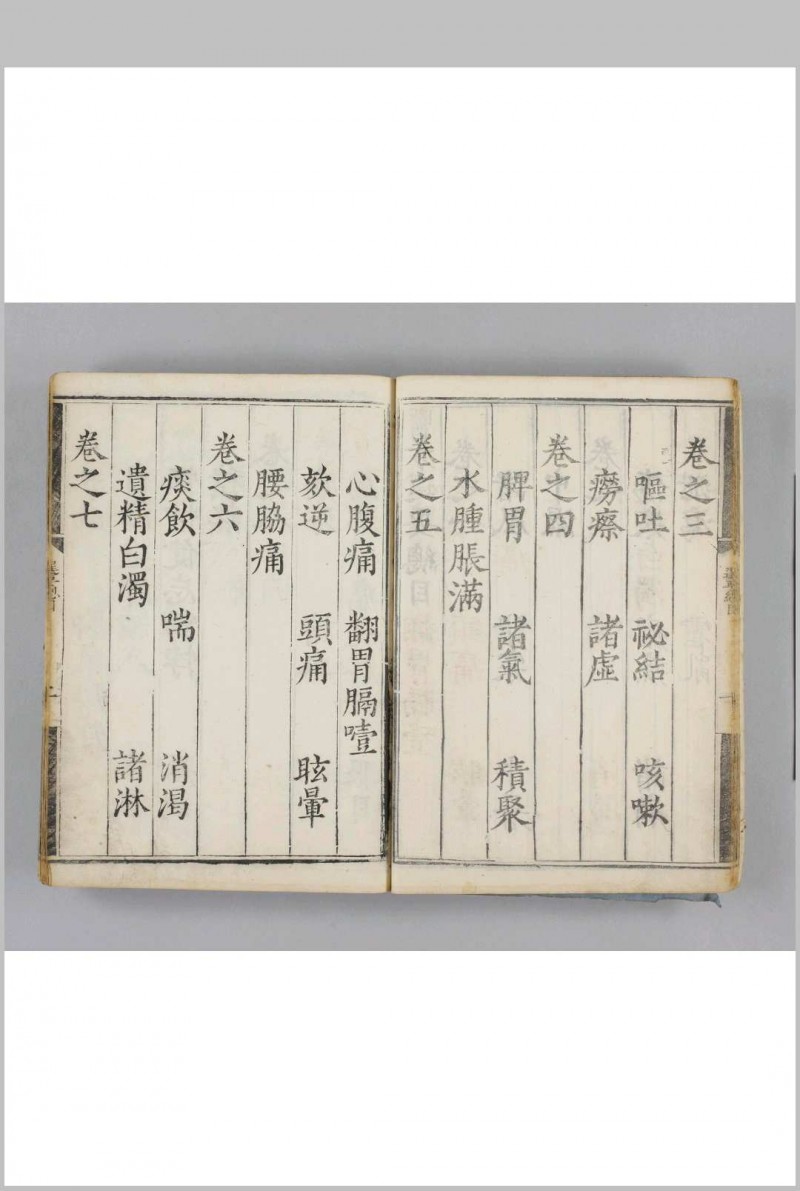 卷之三
嘔吐 祕結 咳嗽
癆瘵 諸虛
卷之四
脾胃 諸氣 積聚
水腫脹滿
卷之五
心腹痛 翻胃膈噎
欬逆 頭痛 眩暈
腰脇痛
卷之六
痰飲 喘 消渴
遺精白濁 諸淋
卷之七